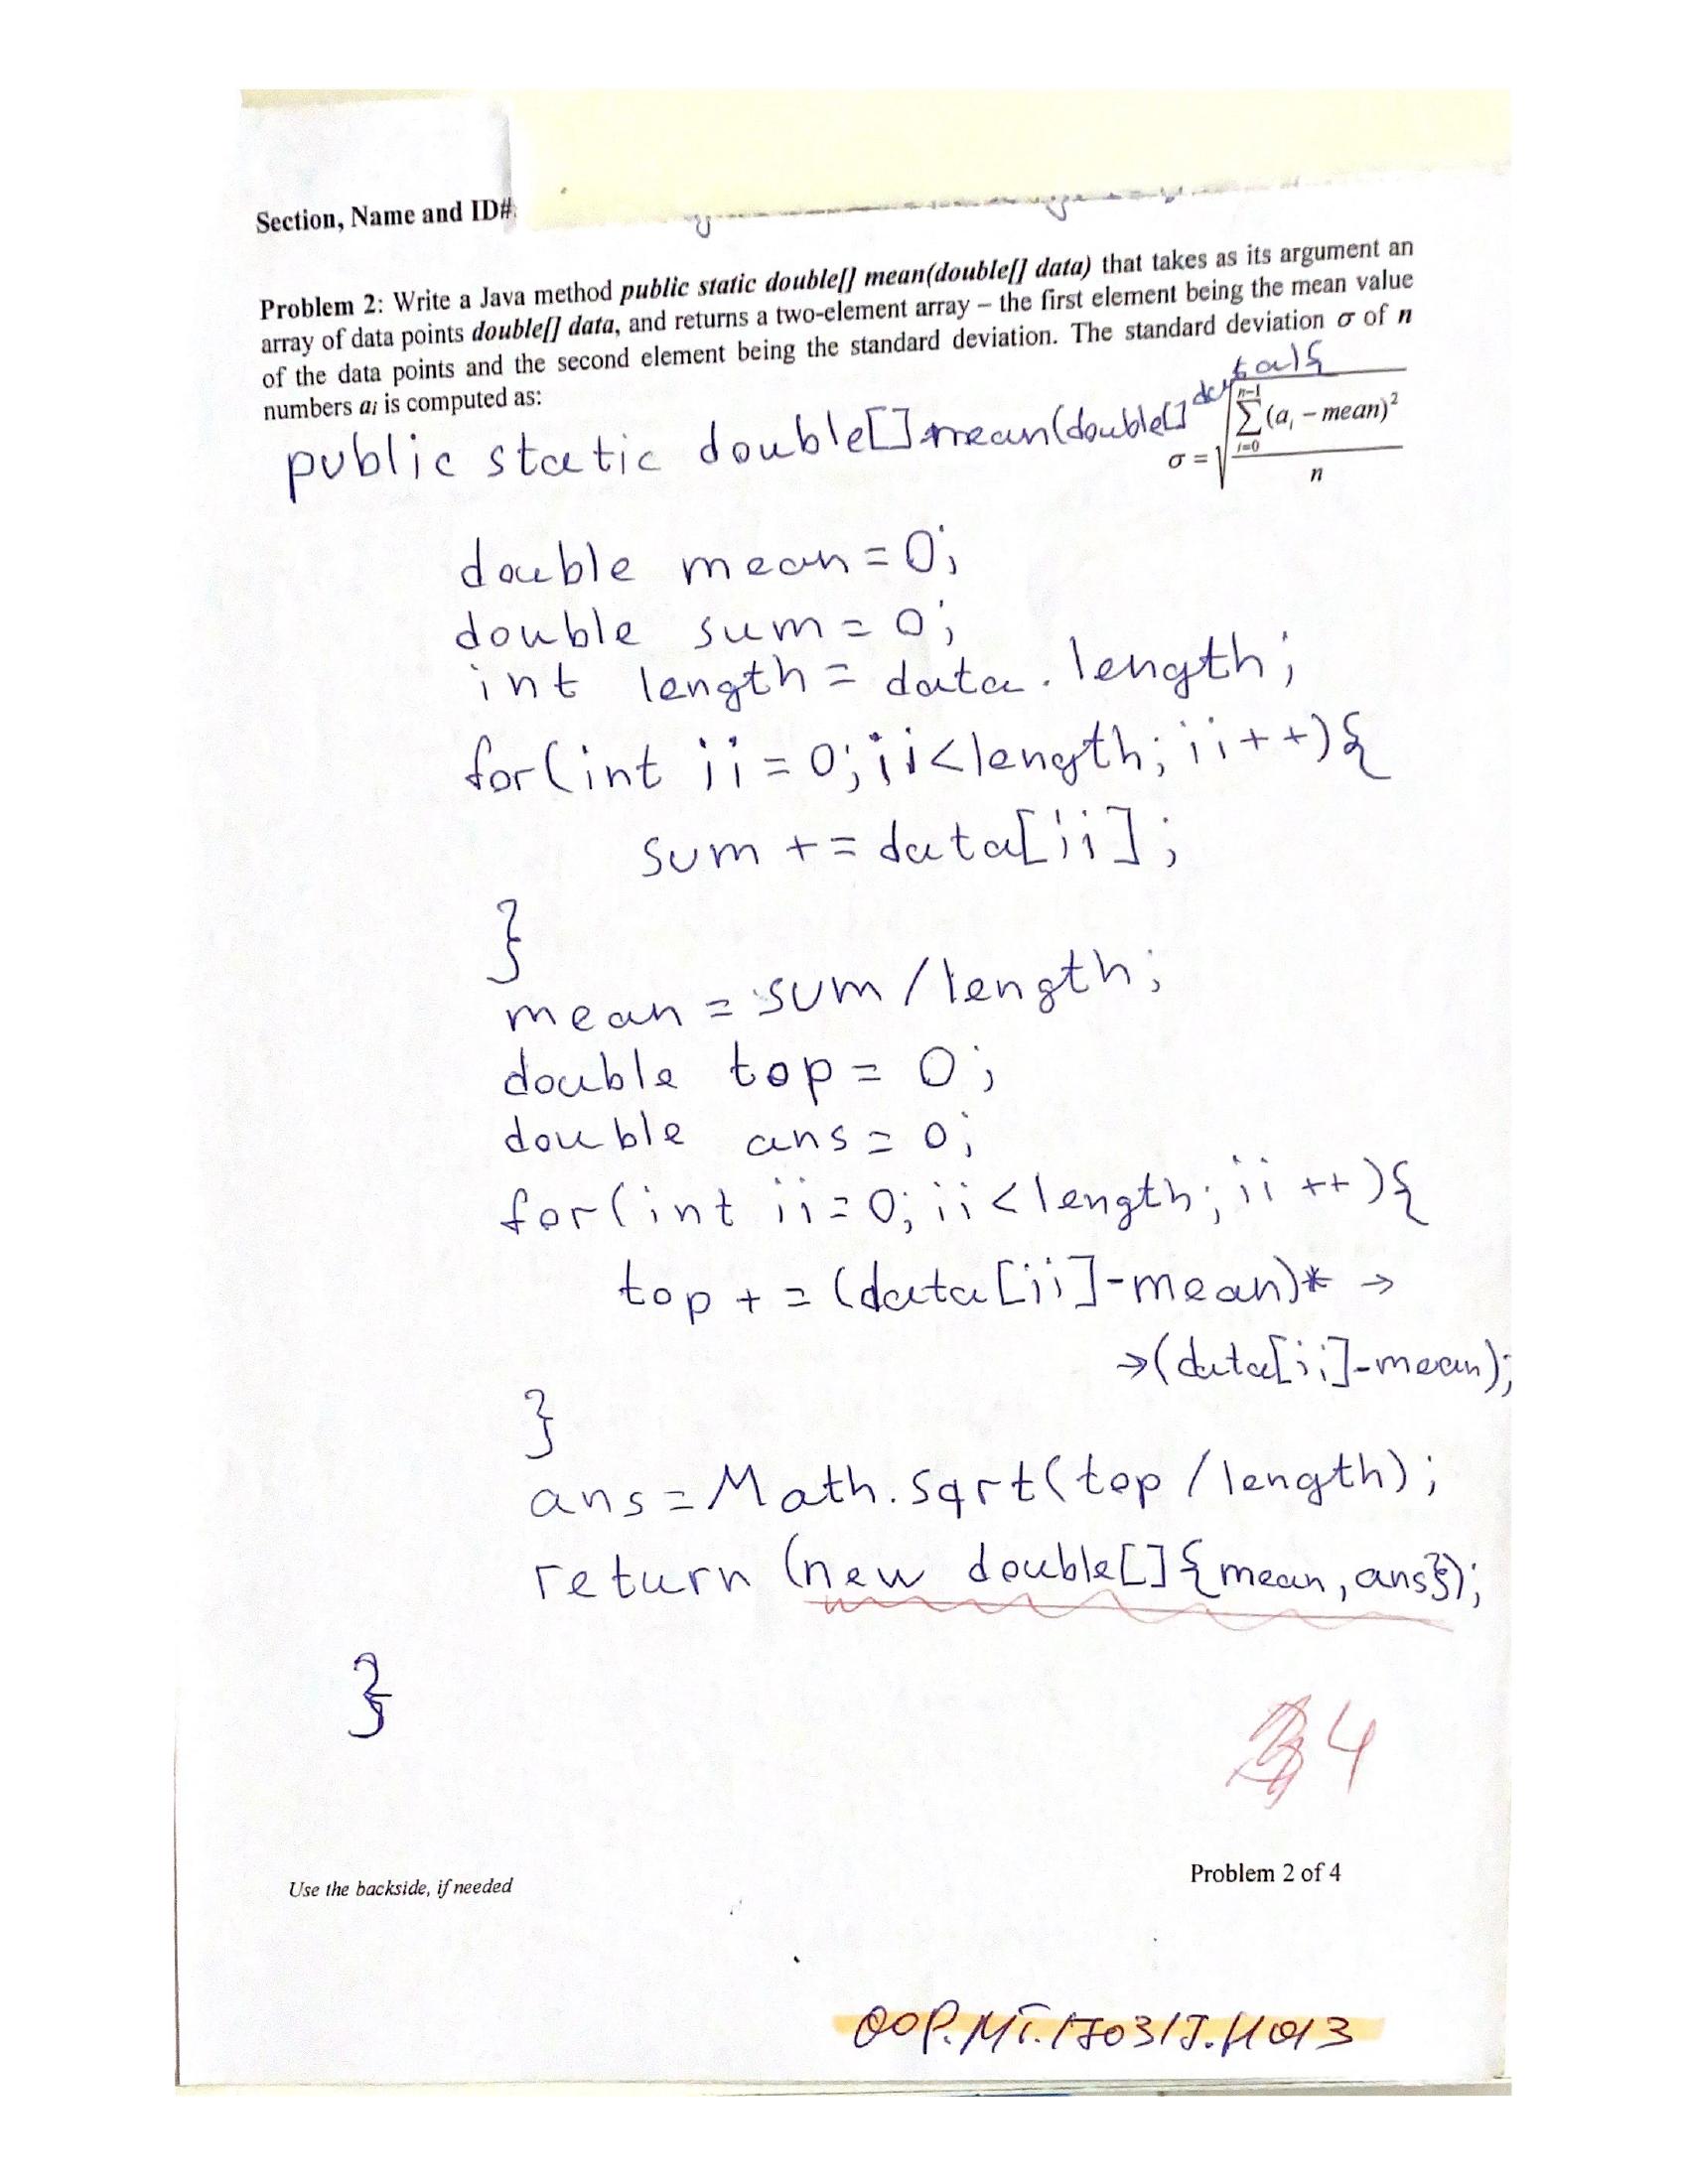 Section, Name and ID#
Problem 2: Write a Java method public static double[] mean(double[] data) that takes as its argument an
array of data points double[] data, and returns a two-element array – the first element being the mean value
of the data points and the second element being the standard deviation. The standard deviation σ of n
numbers aᵢ is computed as:
σ = √(∑_{i=0}^{n-1} (aᵢ – mean)² / n)
public static double[] mean(double[] data){
double mean=0;
double sum=0;
int length=data.length;
for(int ii=0;ii<length;ii++){
sum+=data[ii];
}
mean=sum/length;
double top=0;
double ans=0;
for(int ii=0;ii<length;ii++){
top+=(data[ii]-mean)*→
→(data[ii]-mean);
}
ans=Math.sqrt(top/length);
return (new double[]{mean,ans});
}
4
Use the backside, if needed
Problem 2 of 4